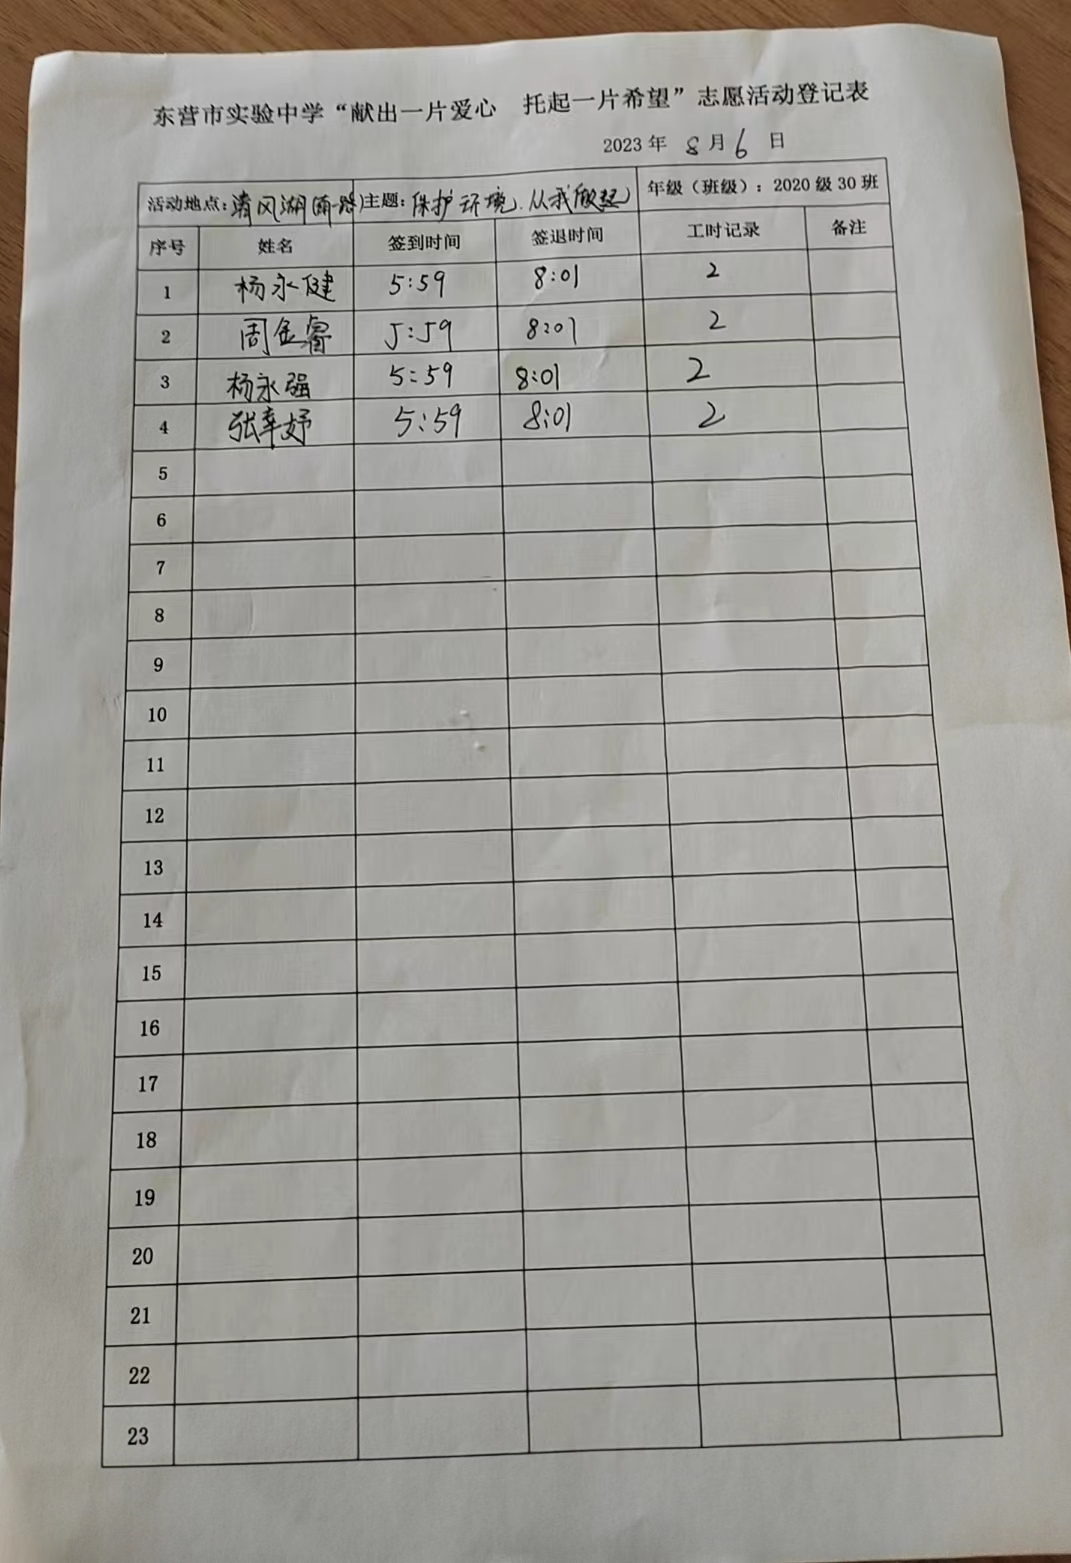 东营市实验中学“献出一片爱心 托起一片希望”志愿活动登记表
2023 年 8 月 6 日
活动地点：清风湖南一路 主题：保护环境、从我做起 年级（班级）：2020 级 30 班
序号 姓名 签到时间 签退时间 工时记录 备注
1 杨永健 5:59 8:01 2
2 周金睿 5:59 8:01 2
3 杨永强 5:59 8:01 2
4 张幸妤 5:59 8:01 2
5
6
7
8
9
10
11
12
13
14
15
16
17
18
19
20
21
22
23